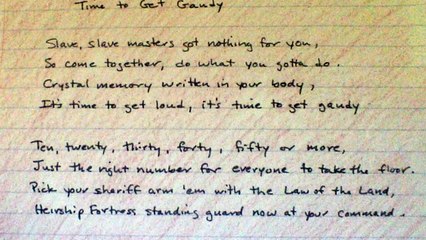 Time to Get Gandy
Slave, slave masters got nothing for you,
So come together, do what you gotta do.
Crystal memory written in your body,
It's time to get loud, it's time to get gandy
Ten, twenty, thirty, forty, fifty or more,
Just the right number for everyone to take the floor.
Pick your sheriff arm 'em with the Law of the Land,
Heirship Fortress standing guard now at your command.